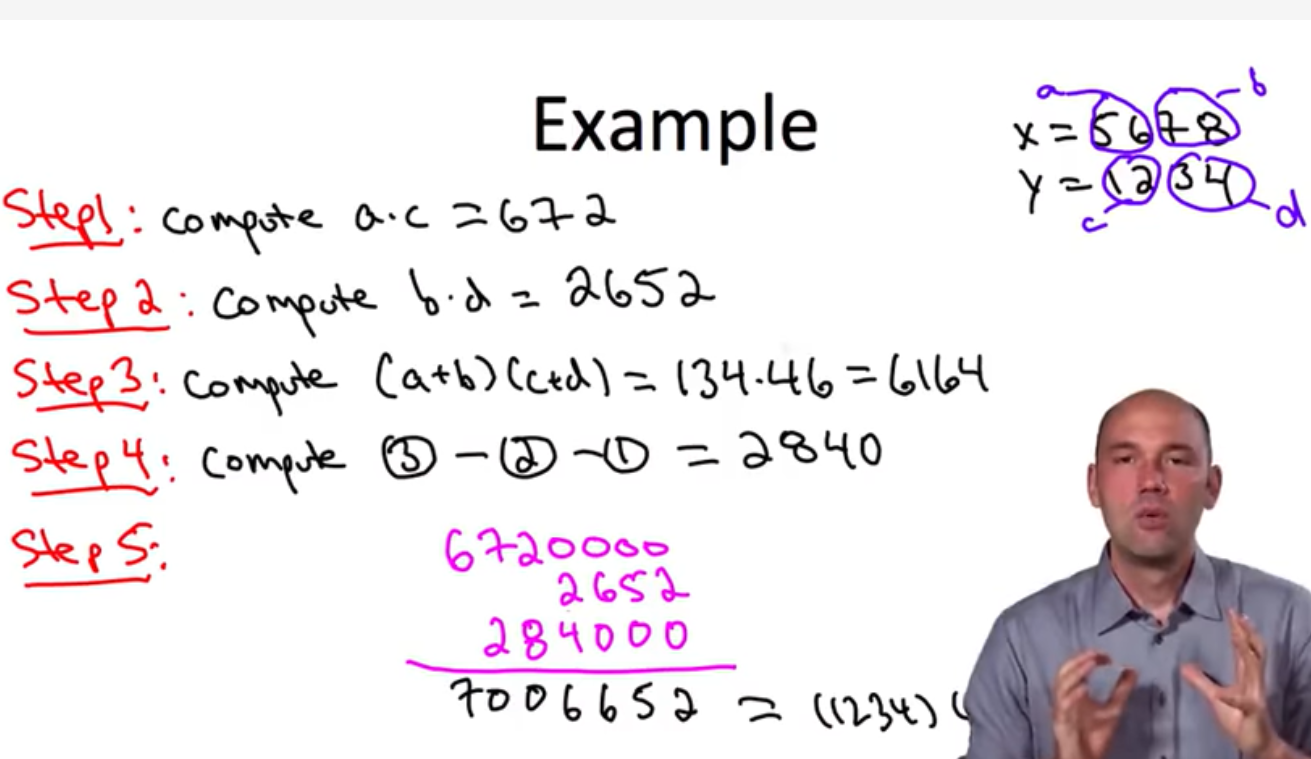 Example
a b
x = 5678
y = 1234
c d
Step1: compute a·c = 672
Step 2: compute b·d = 2652
Step3: compute (a+b)(c+d) = 134·46 = 6164
Step 4: compute ③ - ② - ① = 2840
Step 5:
6720000
2652
284000
7006652 = (1234)(